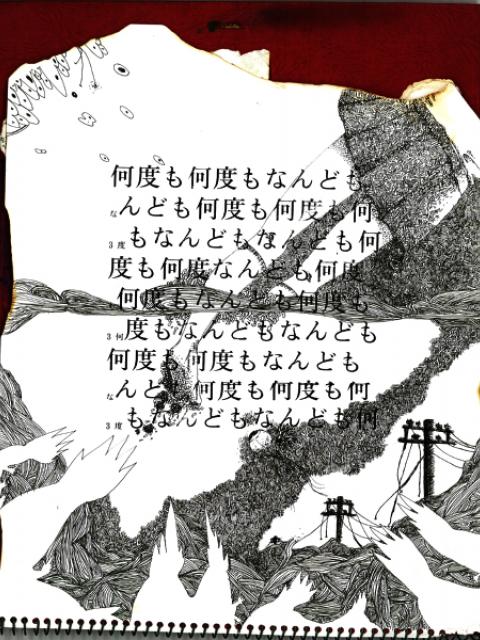 何度も何度もなんども
なんども何度も何度も何
3度もなんどもなんども何
度も何度なんども何度
何度もなんども何度も
3何度もなんどもなんども
何度も何度もなんども
なんども何度も何度も何
3度もなんどもなんども何